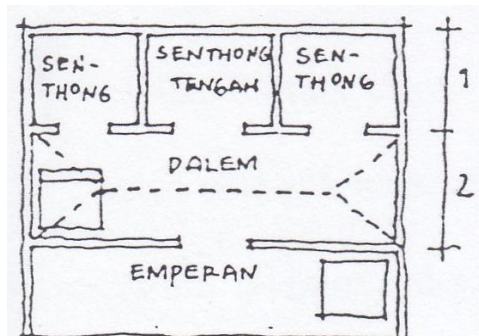 SEN-
THONG
SENTHONG
TENGAH
SEN-
THONG
1
DALEM
2
EMPERAN